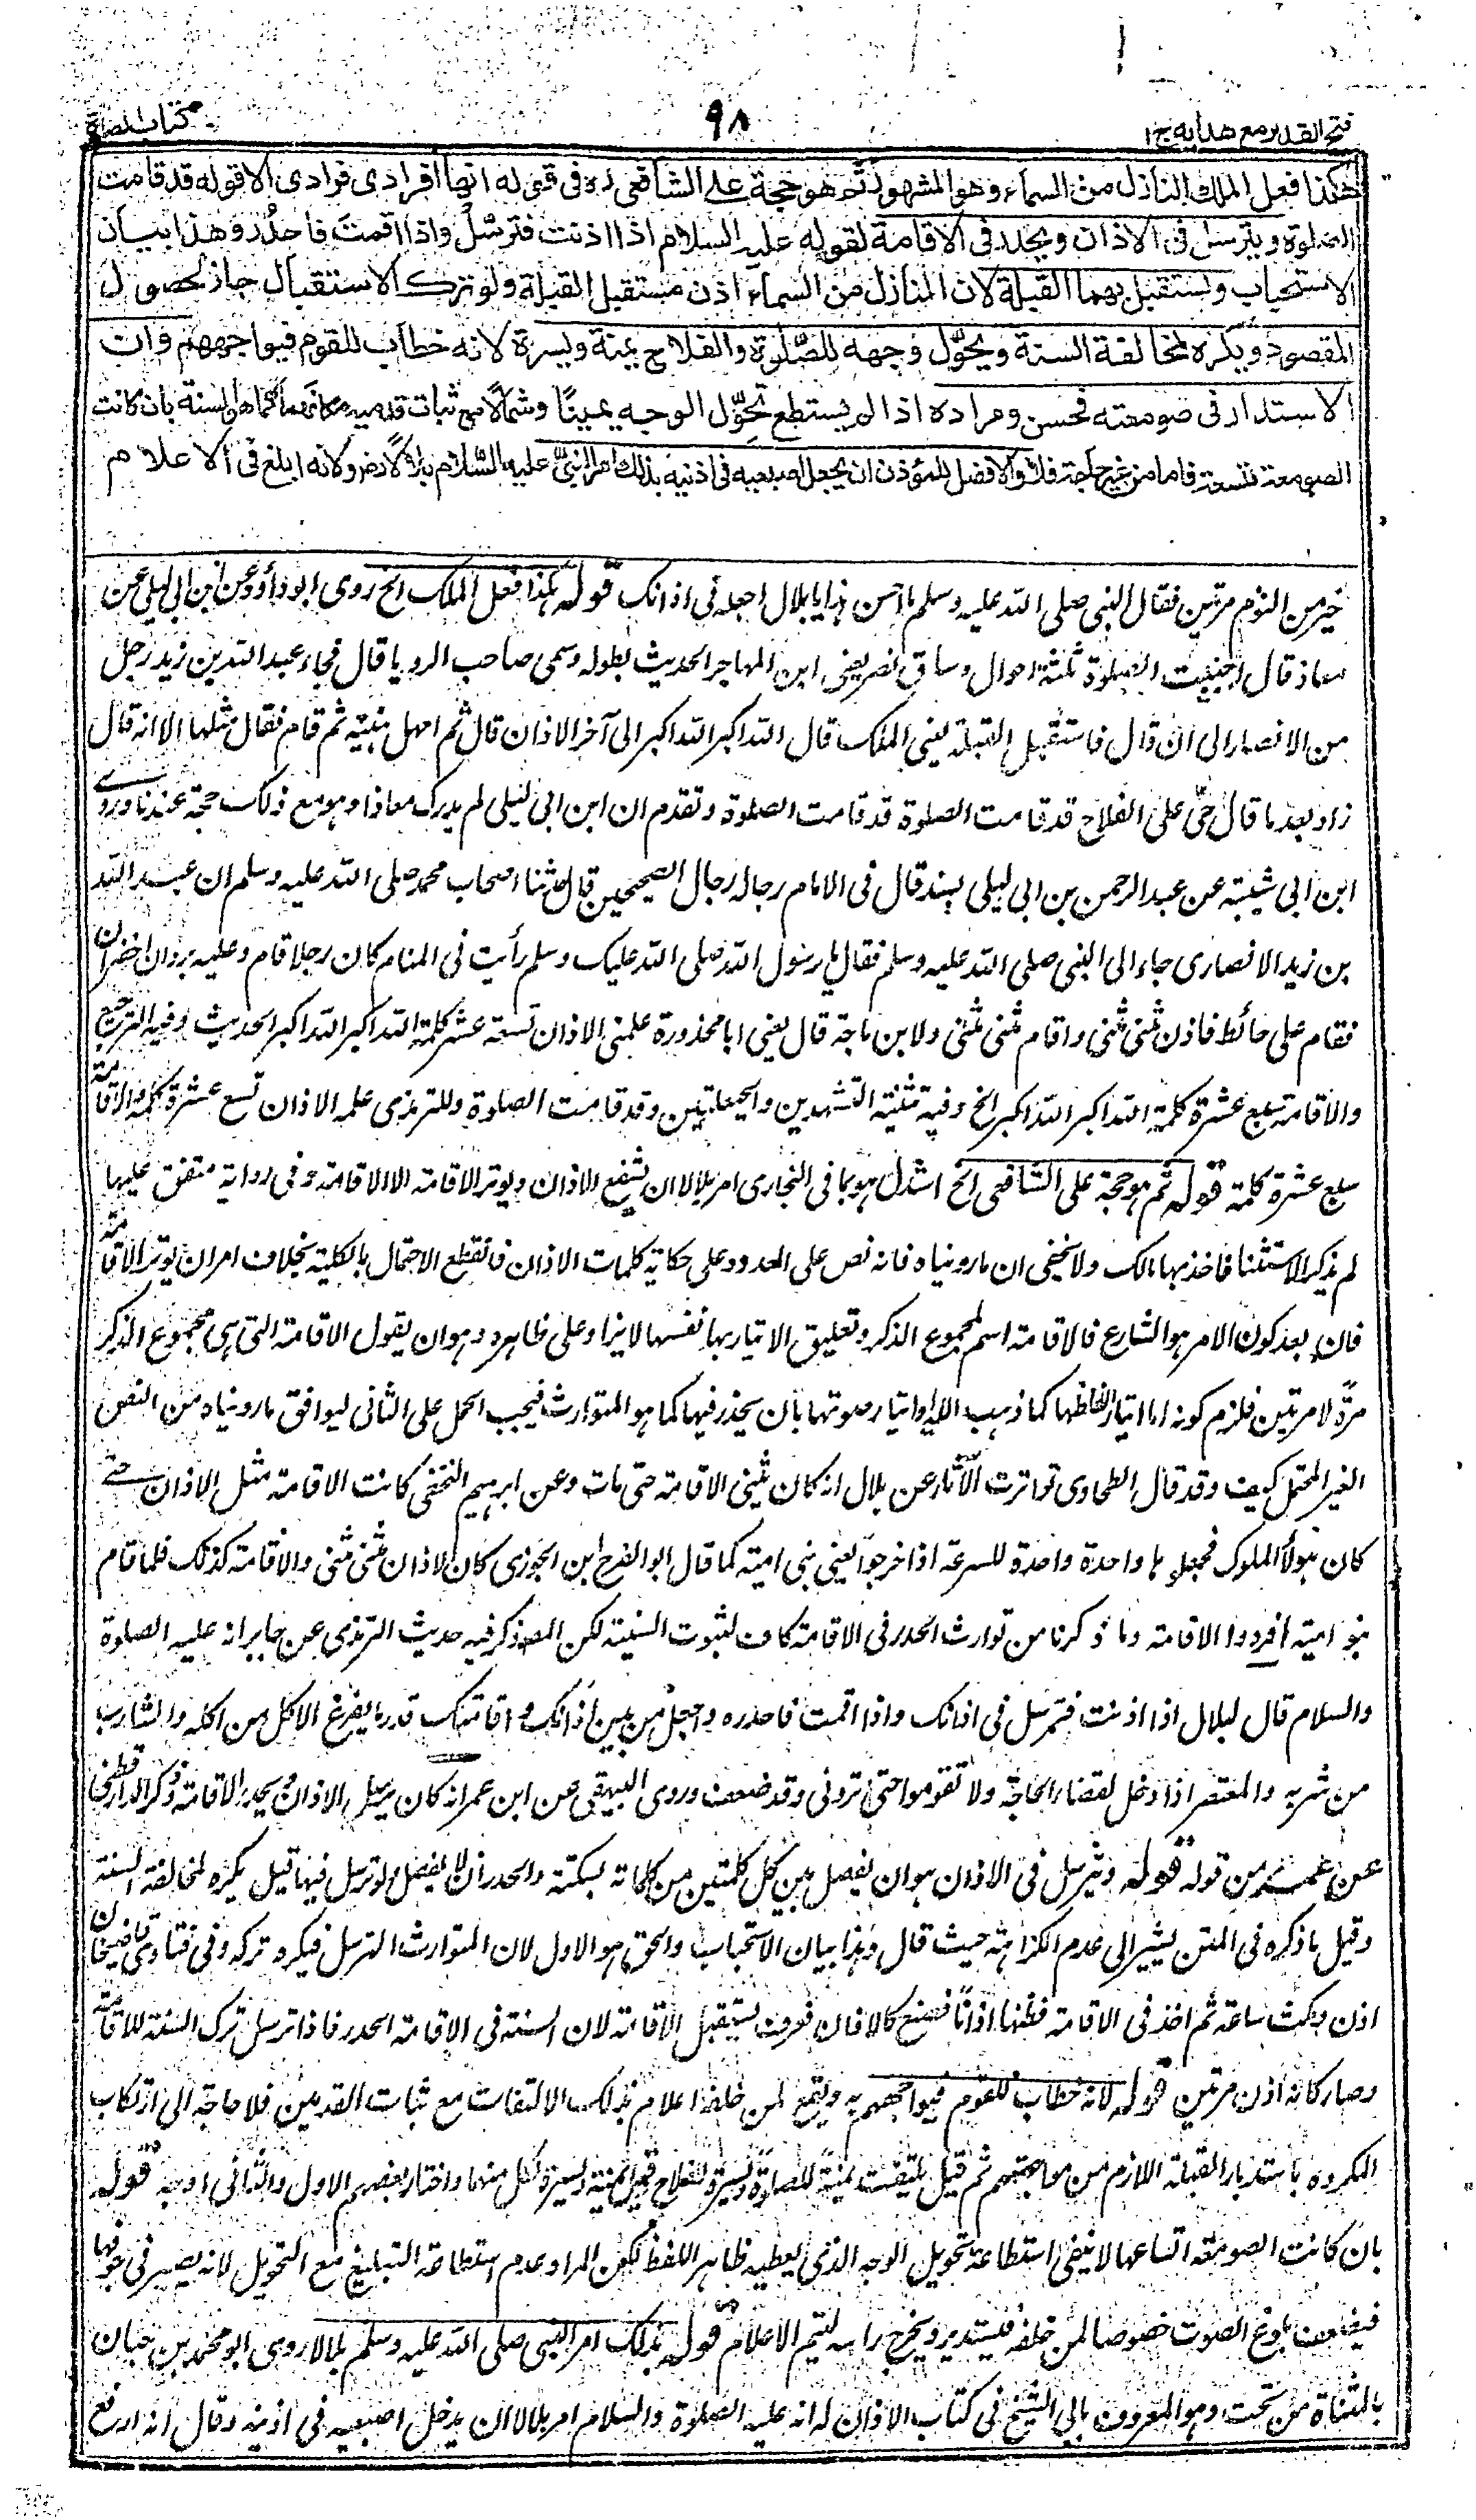 فتح القدير مع هدايه ج ١
٩٨
كتاب الصلوة
هكذا فعل الملك النازل من السماء وهو المشهور ثم هو حجة على الشافعى ره فى قوله انها افرادى فرادى الا قوله قد قامت
الصلوة ويترسل فى الاذان ويحدر فى الاقامة لقوله عليه السلام اذا اذنت فترسل واذا اقمت فاحدر وهذا بيان
الاستحباب ويستقبل بهما القبلة لان النازل من السماء اذن مستقبل القبلة ولو ترك الاستقبال جاز لحصول
المقصود ويكره لمخالفة السنة ويحوّل وجهه للصلوة والفلاح يمنة ويسرة لانه خطاب للقوم فيواجههم وان
الاستدار فى صومعته فحسن ومراده اذا لم يستطع تحوّل الوجه يمينًا وشمالًا مع ثبات قدميه مكانهما كما هو السنة بان كانت
الصومعة متسعة فاما من غير حاجة فلا والافضل للمؤذن ان يجعل اصبعيه فى اذنيه بذلك امر النبىّ عليه السّلام بلالًا رض ولانه ابلغ فى الاعلام
خير من النوم مرتين فقال النبى صلى الله عليه وسلم ما احسن هذا يا بلال اجعله فى اذانك قوله هكذا فعل الملك الخ روى ابو داؤد عن ابن ابى ليلى عن
معاذ قال احيلت الصلوة ثلثة احوال وساق نصر يعنى ابن المهاجر الحديث بطوله وسمى صاحب الرويا قال فجاء عبد الله بن زيد رجل
من الانصار الى ان قال فاستقبل القبلة يعنى الملك قال الله اكبر الله اكبر الى آخر الاذان قال ثم امهل هنية ثم قام فقال مثلها الا انه قال
زاد بعد ما قال حى على الفلاح قد قامت الصلوة قد قامت الصلوة وتقدم ان ابن ابى ليلى لم يدرك معاذا وهو مع ذلك حجة عندنا وروى
ابن ابى شيبة عن عبد الرحمن بن ابى ليلى بسند قال فى الامام رجاله رجال الصحيحين قال حدثنا اصحاب محمد صلى الله عليه وسلم ان عبد الله
بن زيد الانصارى جاء الى النبى صلى الله عليه وسلم فقال يا رسول الله صلى الله عليك وسلم رأيت فى المنام كان رجلا قام وعليه بردان اخضران
فقام على حائط فاذن مثنى مثنى واقام مثنى مثنى ولابن ماجة قال يعنى ابا محذورة علمنى الاذان تسعة عشر كلمة الله اكبر الله اكبر الحديث وفيه الترجيع
والاقامة سبع عشرة كلمة الله اكبر الله اكبر الخ وفيه تثنية التشهدين والحيعلتين وقد قامت الصلوة وللترمذى علمه الاذان تسع عشرة كلمة والاقامة
سبع عشرة كلمة قوله ثم هو حجة على الشافعى الخ استدل هو بما فى البخارى امر بلالا ان يشفع الاذان ويوتر الاقامة الا الاقامة وفى رواية متفق عليها
لم يذكر الاستثنا فاخذ بها مالك ولا يخفى ان ما رويناه فانه نص على العدد وعلى حكاية كلمات الاذان فانقطع الاحتمال بالكلية بخلاف امر ان يوتر الاقامة
فان بعد كون الامر هو الشارع فالاقامة اسم لمجموع الذكر وتعليق الايتار بها نفسها لا يراد على ظاهره وهو ان يقول الاقامة التى هى مجموع الذكر
مرّة لا مرتين فلزم كونه اما ايتار الفاظها كما ذهب اليه او ايتار صوتها بان يحدر فيها كما هو المتوارث فيجب الحمل على الثانى ليوافق ما رويناه من النص
الغير المحتمل كيف وقد قال الطحاوى تواترت الآثار عن بلال انه كان يثنى الاقامة حتى مات وعن ابراهيم النخعى كانت الاقامة مثل الاذان حتى
كان هؤلاء الملوك فجعلوها واحدة واحدة للسرعة اذا خرجوا يعنى بنى امية كما قال ابو الفرج ابن الجوزى كان الاذان مثنى مثنى والاقامة كذلك فلما قام
بنو امية افردوا الاقامة وما ذكرنا من توارث الحدر فى الاقامة كاف لثبوت السنية لكن المص ذكر فيه حديث الترمذى عن جابر انه عليه الصلوة
والسلام قال لبلال اذا اذنت فترسل فى اذانك واذا اقمت فاحدره واجعل من بين اذانك و اقامتك قدر ما يفرغ الاكل من اكله والشارب
من شربه والمعتصر اذا دخل لقضاء الحاجة ولا تقوموا حتى ترونى وقد ضعف وروى البيهقى عن ابن عمر انه كان يرتل الاذان ويحدر الاقامة وذكره الدارقطنى
عن عمر من قوله قوله ويترسل فى الاذان هو ان يفصل بين كل كلمتين من كلماته بسكتة والحدر ان لا يفصل ولو ترسل فيها قيل يكره لمخالفة السنة
وقيل ما ذكره فى المتن يشير الى عدم الكراهة حيث قال وهذا بيان الاستحباب والحق هو الاول لان المتوارث الترسل فيكره تركه وفى فتاوى قاضيخان
اذن ومكث ساعة ثم اخذ فى الاقامة فظنها اذانًا فصنع كالاذان فعرف يستقبل الاقامة لان السنة فى الاقامة الحدر فاذا ترسل ترك السنة للاقامة
وصار كانه اذن مرتين قوله لانه خطاب للقوم فيواجههم به وليتم لمن خلفه اعلام بذلك الالتفات مع ثبات القدمين فلا حاجة الى ارتكاب
المكروه باستدبار القبلة اللازم من مواجهتهم ثم قيل يلتفت يمنة للصلوة ويسرة للفلاح وقيل يمنة ويسرة لكل منهما واختار بعضهم الاول والثانى اوجه قوله
بان كانت الصومعة اتساعها لا ينفى استطاعة تحويل الوجه الذى يعطيه ظاهر اللفظ لكن المراد عدم استطاعة التبليغ مع التحويل لانه يصير فى جوفها
فيضعف بلوغ الصوت خصوصا لمن خلفه فيستدير ويخرج راسه ليتم الاعلام قوله بذلك امر النبى صلى الله عليه وسلم بلالا روى ابو محمد بن حبان
بالمثناة من تحت وهو المعروف بابى الشيخ فى كتاب الاذان له انه عليه الصلوة والسلام امر بلالا ان يدخل اصبعيه فى اذنيه وقال انه ارفع